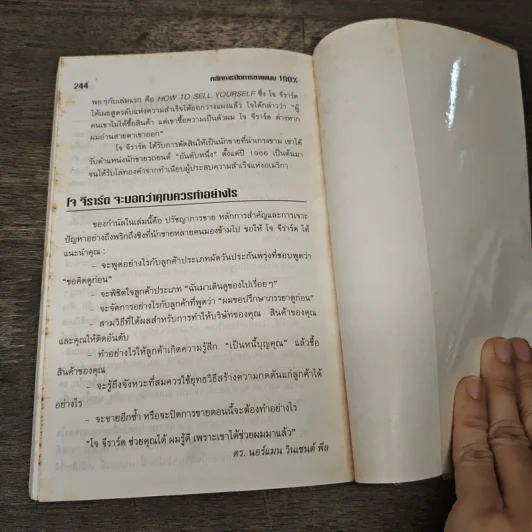 244
หลักการปิดการขายแบบ 100%
พอๆกับเล่มแรก คือ HOW TO SELL YOURSELF ซึ่ง โจ จีราร์ด
ได้เผยสูตรลับแห่งความสำเร็จได้ออกวางแผงแล้ว โจได้กล่าวว่า "ผู้
คนเขาไม่ได้ซื้อสินค้า แต่เขาซื้อความเป็นตัวผม โจ จีราร์ด ต่างหาก
ผมอ่านสายตาเขาออก"
โจ จีราร์ด ได้รับการตัดสินให้เป็นนักขายที่น่าเกรงขาม เขาได้
รับตำแหน่งนักขายรถยนต์ "อันดับหนึ่ง" ตั้งแต่ปี 1966 เป็นต้นมา
จนได้รับโล่ทองคำจากทำเนียบผู้ประสบความสำเร็จแห่งอเมริกา
โจ จีราร์ด จะบอกว่าคุณควรทำอย่างไร
ของกำนัลในเล่มนี้คือ ปรัชญาการขาย หลักการสำคัญและการเจาะ
ปัญหาอย่างถึงพริกถึงขิงที่นักขายหลายคนมองข้ามไป ขอให้ โจ จีราร์ด ได้
แนะนำคุณ :
– จะพูดอย่างไรกับลูกค้าประเภทผัดวันประกันพรุ่งที่ชอบพูดว่า
"ขอคิดดูก่อน"
– จะพิชิตใจลูกค้าประเภท "ฉันมาเดินดูของไปเรื่อยๆ"
– จะจัดการอย่างไรกับลูกค้าที่พูดว่า "ผมขอปรึกษาภรรยาดูก่อน"
– สามวิธีที่ได้ผลสำหรับการทำให้บริษัทของคุณ สินค้าของคุณ
และคุณให้ติดอันดับ
– ทำอย่างไรให้ลูกค้าเกิดความรู้สึก "เป็นหนี้บุญคุณ" แล้วซื้อ
สินค้าของคุณ
– จะรู้ถึงจังหวะที่สมควรใช้ยุทธวิธีสร้างความกดดันแก่ลูกค้าได้
อย่างไร
– จะขายอีกซ้ำ หรือจะปิดการขายตอนนี้จะต้องทำอย่างไร
"โจ จีราร์ด ช่วยคุณได้ ผมรู้ดี เพราะเขาได้ช่วยผมมาแล้ว"
ดร. นอร์แมน วินเซนต์ พีล